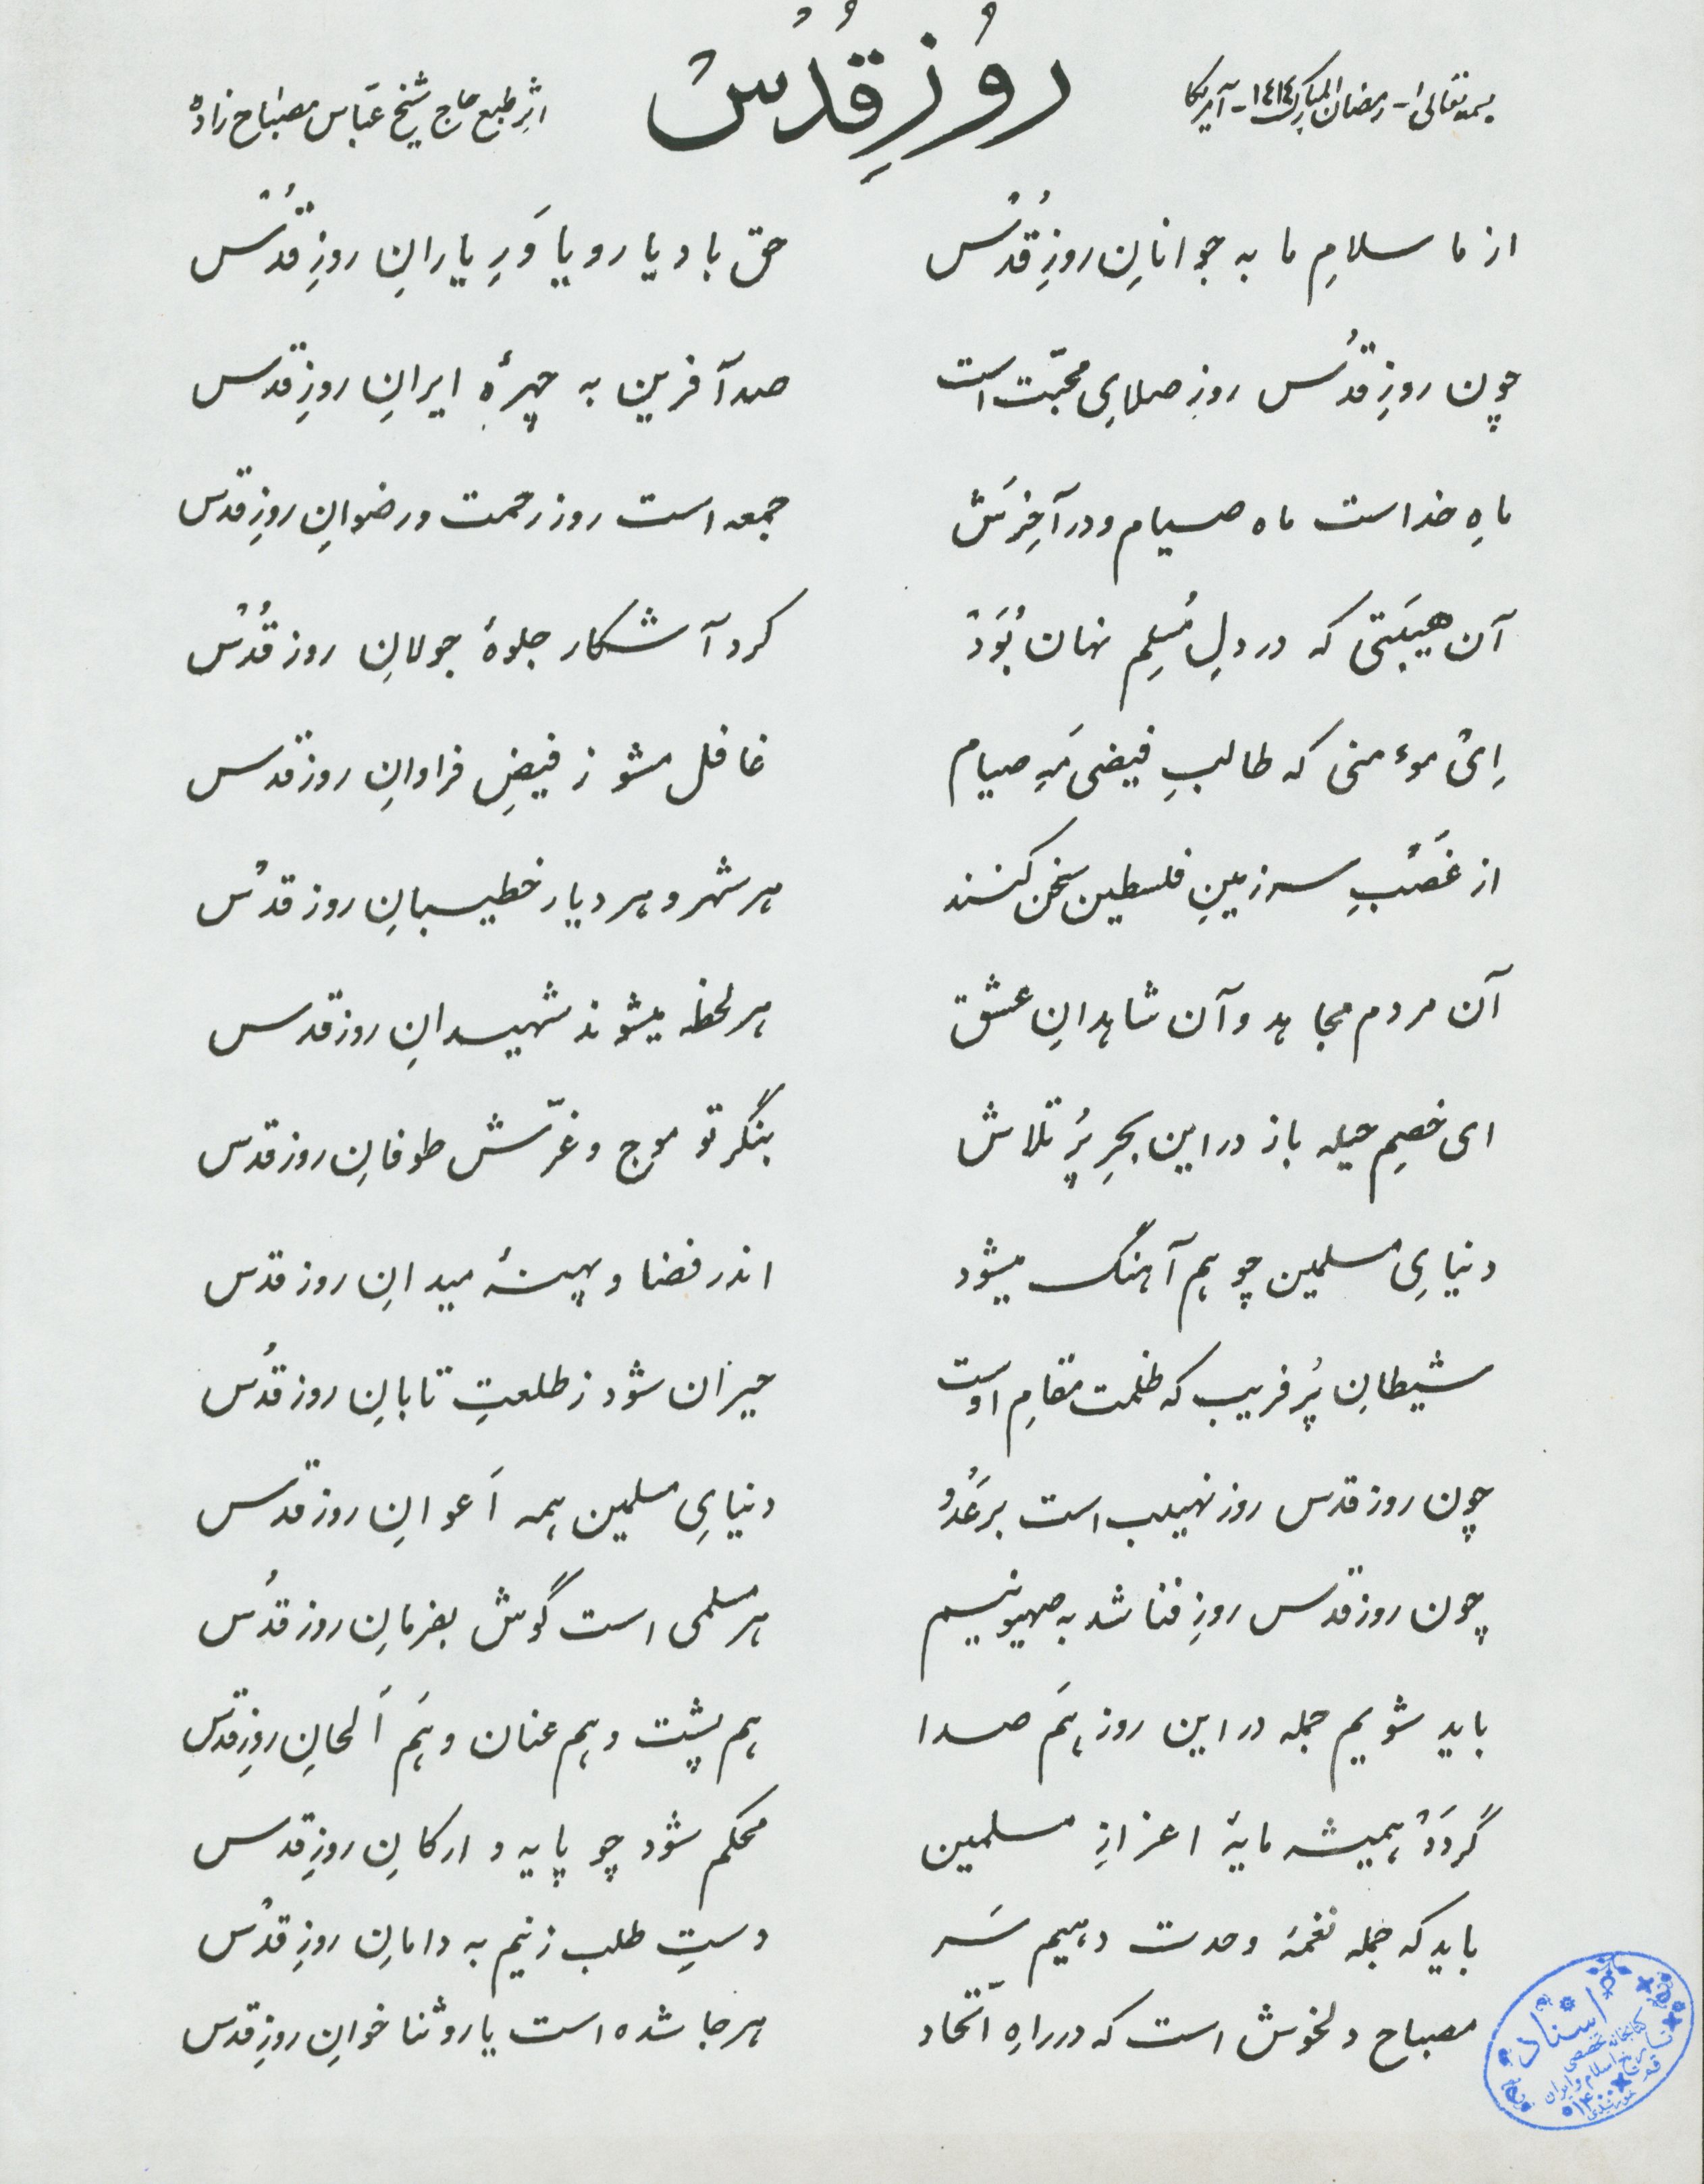 بسمه تعالی - رمضان المبارک ١٤١٤ - آمریکا
روُزِ قُدُسْ
اثرِ طبع حاج شیخ عبّاس مصباح زاده
از ما سلامِ ما به جوانانِ روزِ قُدُسْ حق باد یار و یاوَرِ یارانِ روزِ قُدُسْ
چون روزِ قدُس روز صلایِ محبّت است صد آفرین به چهرهٔ ایرانِ روزِ قدس
ماهِ خداست ماه صیام و در آخِرَش جمعه است روز رحمت و رضوانِ روزِ قدس
آن هیبَتی که در دلِ مُسلِم نهان بُوَدْ کرد آشکار جلوهٔ جولانِ روز قُدُسْ
اِیْ موءمنی که طالبِ فیضی مَهِ صیام غافل مشو ز فیضِ فراوانِ روز قدس
از غَصْبِ سرزمینِ فلسطین سخن کنند هر شهر و هر دیار خطیبانِ روز قدْس
آن مردم مجاهد و آن شاهدانِ عشق هر لحظه میشوند شهیدانِ روز قدس
ای خصمِ حیله باز در این بحرِ پُر تلاش بنگر تو موج و غرّشِ طوفانِ روز قدس
دنیایِ مسلمین چو هم آهنگ میشود اندر فضا و پهنهٔ میدانِ روز قدْس
شیطانِ پُر فریب که ظلمت مقامِ اوست حیران شود ز طلعتِ تابانِ روز قدُس
چون روز قدس روز نهیب است بر عَدُو دنیایِ مسلمین همه اَعوانِ روز قدس
چون روز قدس روزِ فنا شد به صهیونیسم هر مسلمی است گوش بفرمانِ روز قدُس
باید شویم جمله در این روز هَم صدا هم پشت و هم عنان و هَم اَلحانِ روزِ قدْس
گردَدْ همیشه مایهٔ اعزازِ مسلمین محکم شود چو پایه و ارکانِ روزِ قدس
باید که جمله نغمهٔ وحدت دهیم سَر دستِ طلب زنیم به دامانِ روزِ قدْس
مصباح دلخوش است که در راهِ اتّحاد هر جا شده است یار و ثنا خوانِ روزِ قدس
اسناد
کتابخانه تخصصی
تاریخ اسلام و ایران
قم